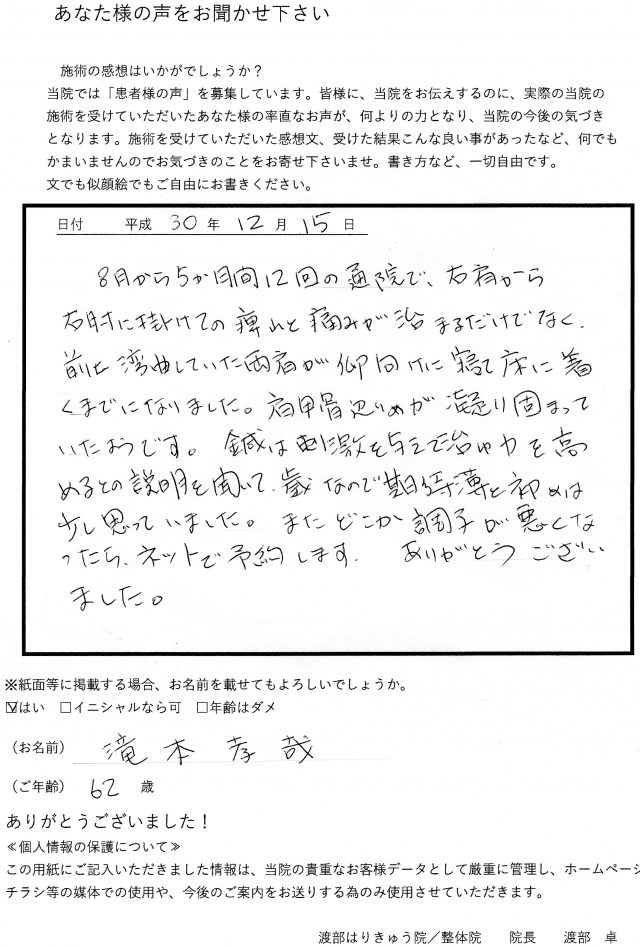 あなた様の声をお聞かせ下さい
施術の感想はいかがでしょうか？
当院では「患者様の声」を募集しています。皆様に、当院をお伝えするのに、実際の当院の
施術を受けていただいたあなた様の率直なお声が、何よりの力となり、当院の今後の気づき
となります。施術を受けていただいた感想文、受けた結果こんな良い事があったなど、何でも
かまいませんのでお気づきのことをお寄せ下さいませ。書き方など、一切自由です。
文でも似顔絵でもご自由にお書きください。
日付　平成 30 年 12 月 15 日
8月から5か月間12回の通院で、右肩から
右肘に掛けての痺れと痛みが治まるだけでなく、
前に湾曲していた両肩が仰向けに寝て床に着
くまでになりました。肩甲骨辺りめが凝り固まって
いたようです。鍼は刺激を与えて治ゆ力を高
めるとの説明を聞いて、歳なので期待薄と初めは
少し思っていました。またどこか調子が悪くな
ったら、ネットで予約します。ありがとうござい
ました。
※紙面等に掲載する場合、お名前を載せてもよろしいでしょうか。
☑はい　□イニシャルなら可　□年齢はダメ
（お名前）滝本孝哉
（ご年齢）62 歳
ありがとうございました！
≪個人情報の保護について≫
この用紙にご記入いただきました情報は、当院の貴重なお客様データとして厳重に管理し、ホームページ
チラシ等の媒体での使用や、今後のご案内をお送りする為のみ使用させていただきます。
渡部はりきゅう院／整体院　院長　渡部　卓